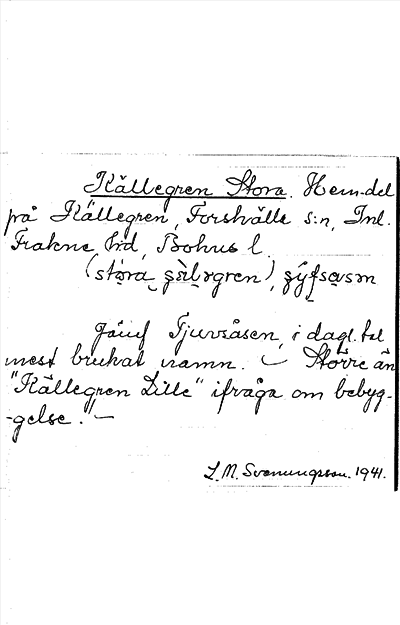 Källegren Stora. Hem.del
på Källegren, Forshälla s:n, Inl.
Frakne hd, Bohus l.
(stora
jämf Tjuvåsen, i dagl. tal
mest brukat namn. — Större än
"Källegren Lille" ifråga om bebyg-
-gelse." —
S. M. Svenungsson. 1941.